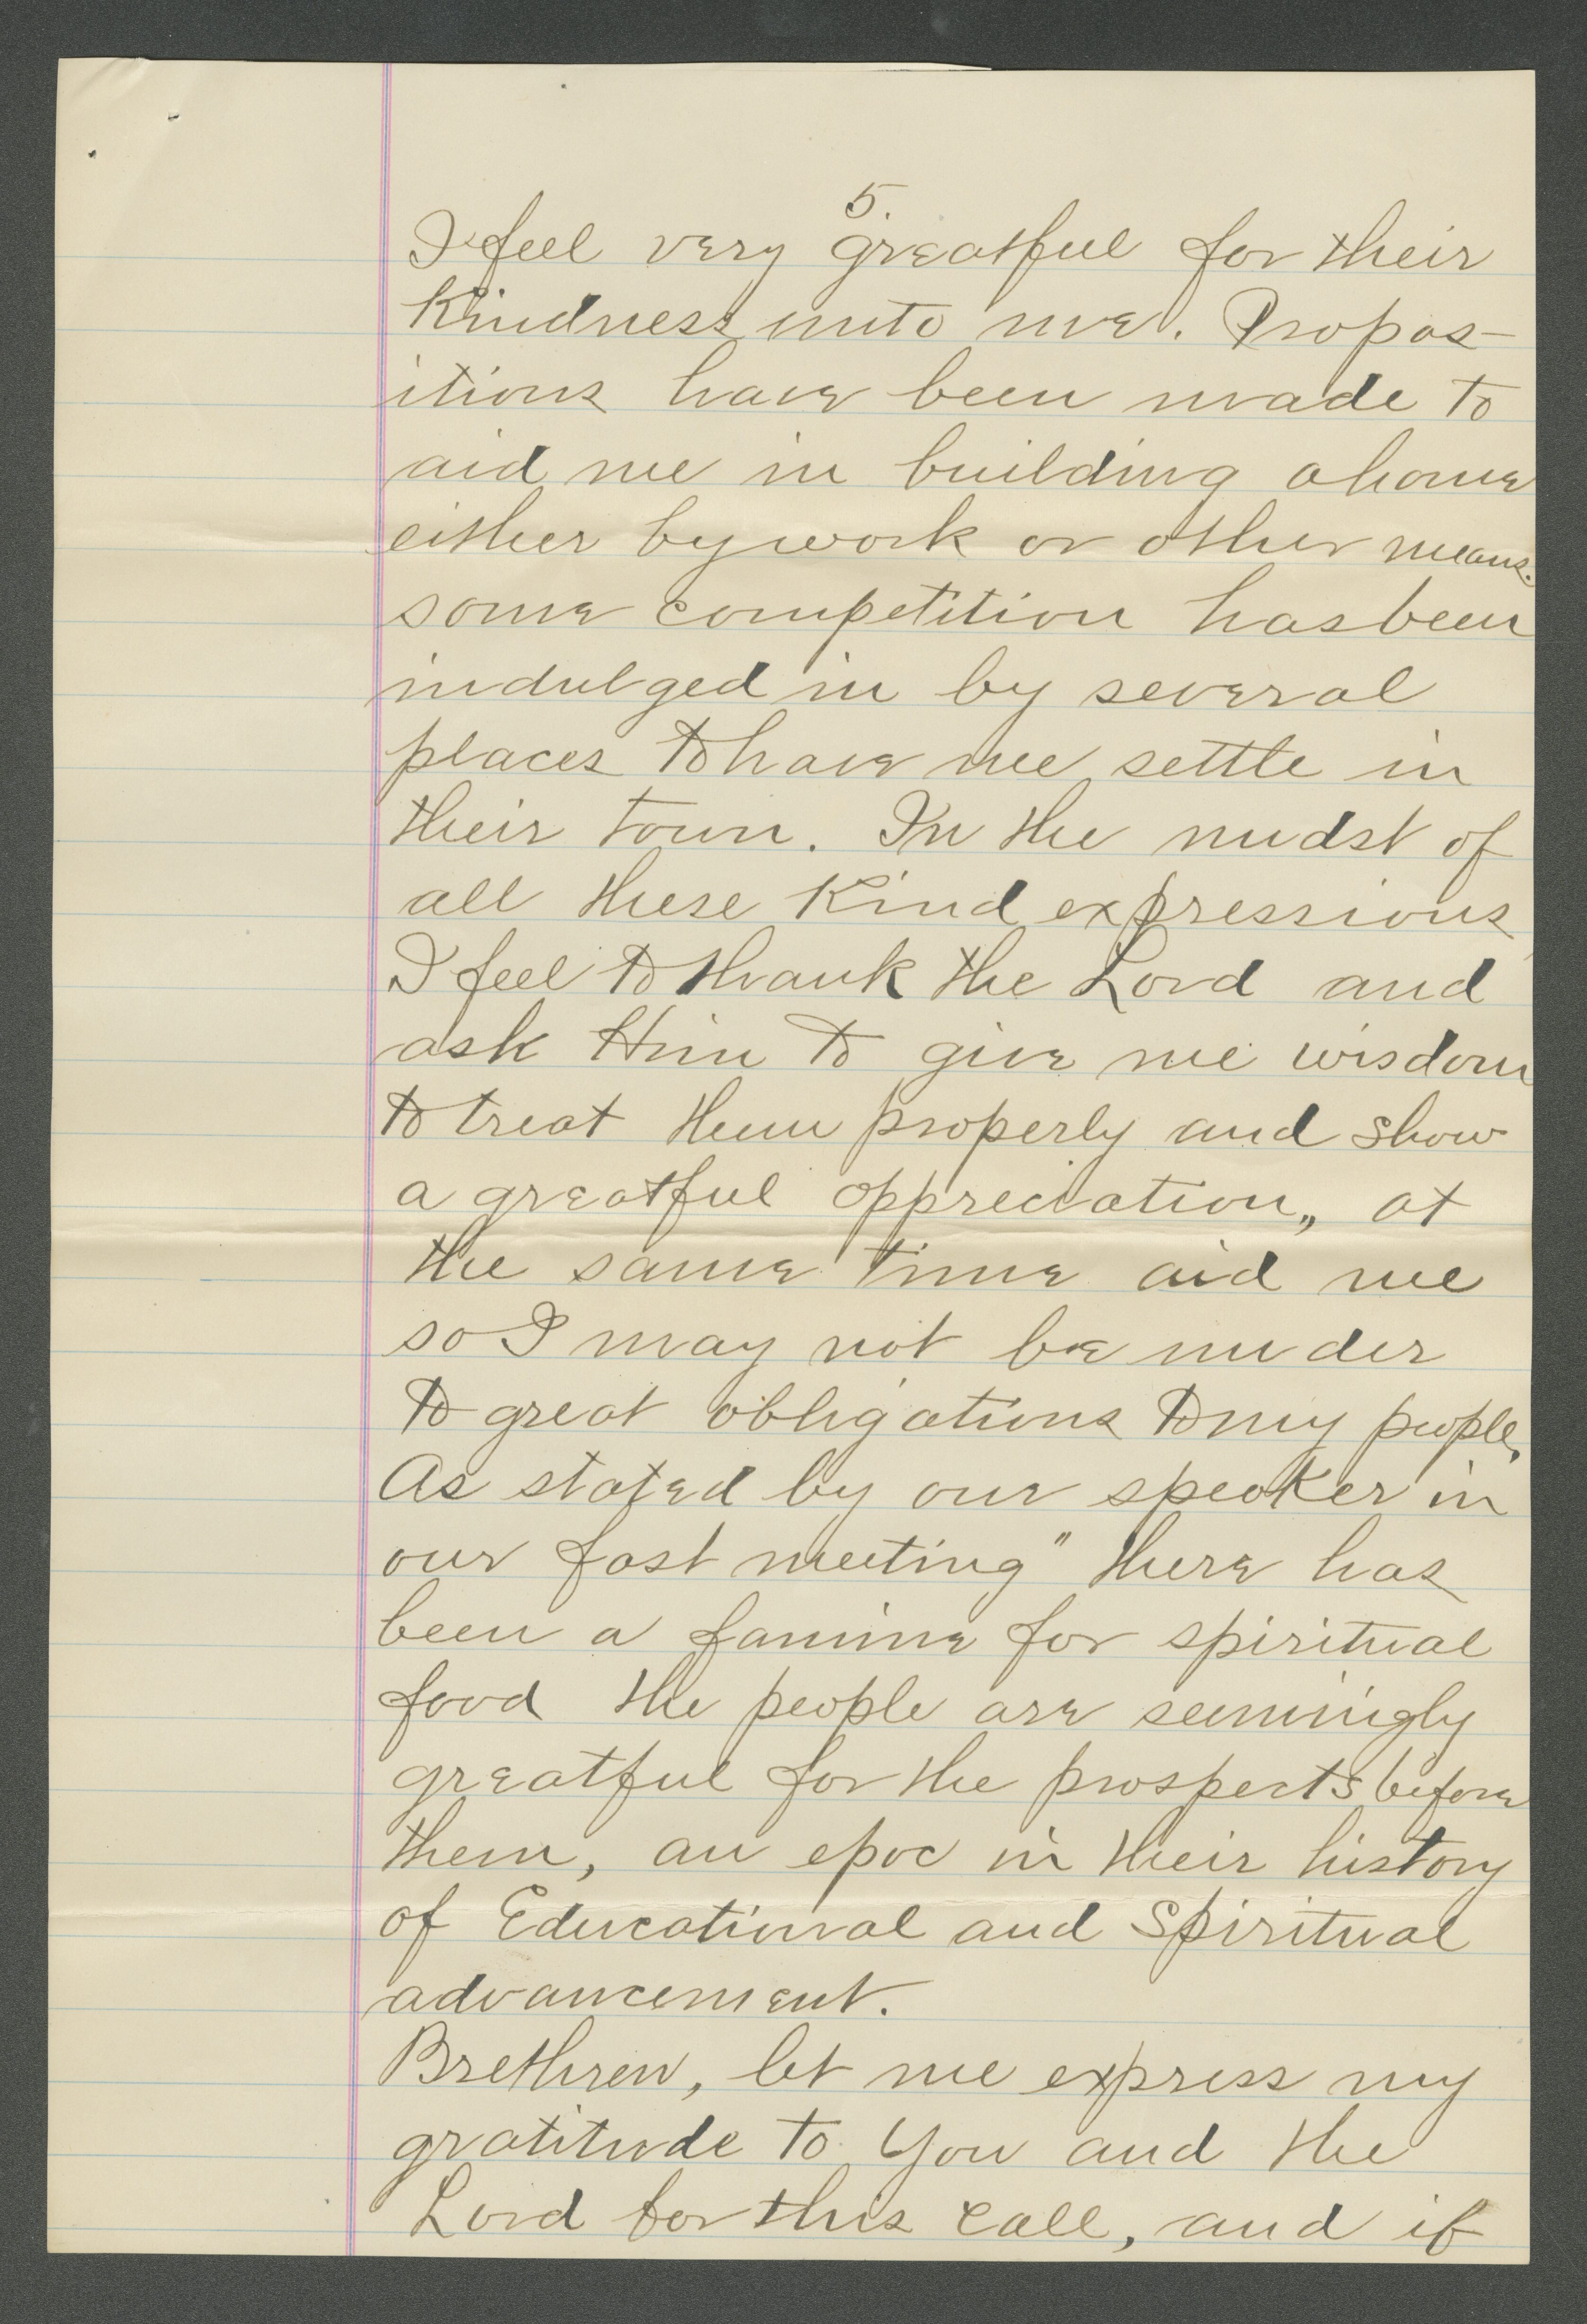 5.
I feel very greatful for their
Kindness unto me. Propos-
itions have been made to
aid me in building a home
either by work or other means.
some competition has been
indulged in by several
places to have me settle in
their town. In the midst of
all these Kind expressions
I feel to thank the Lord and
ask Him to give me wisdom
to treat them properly and show
a greatful appreciation,, at
the same time aid me
so I may not be under
to great obligations to my people.
As stated by our speaker in
our fast meeting " there has
been a famine for spiritual
food the people are seemingly
greatful for the prospects before
them, an epoc in their history
of Educational and Spiritual
advancement.
Brethren, let me express my
gratitude to You and the
Lord for this call, and if